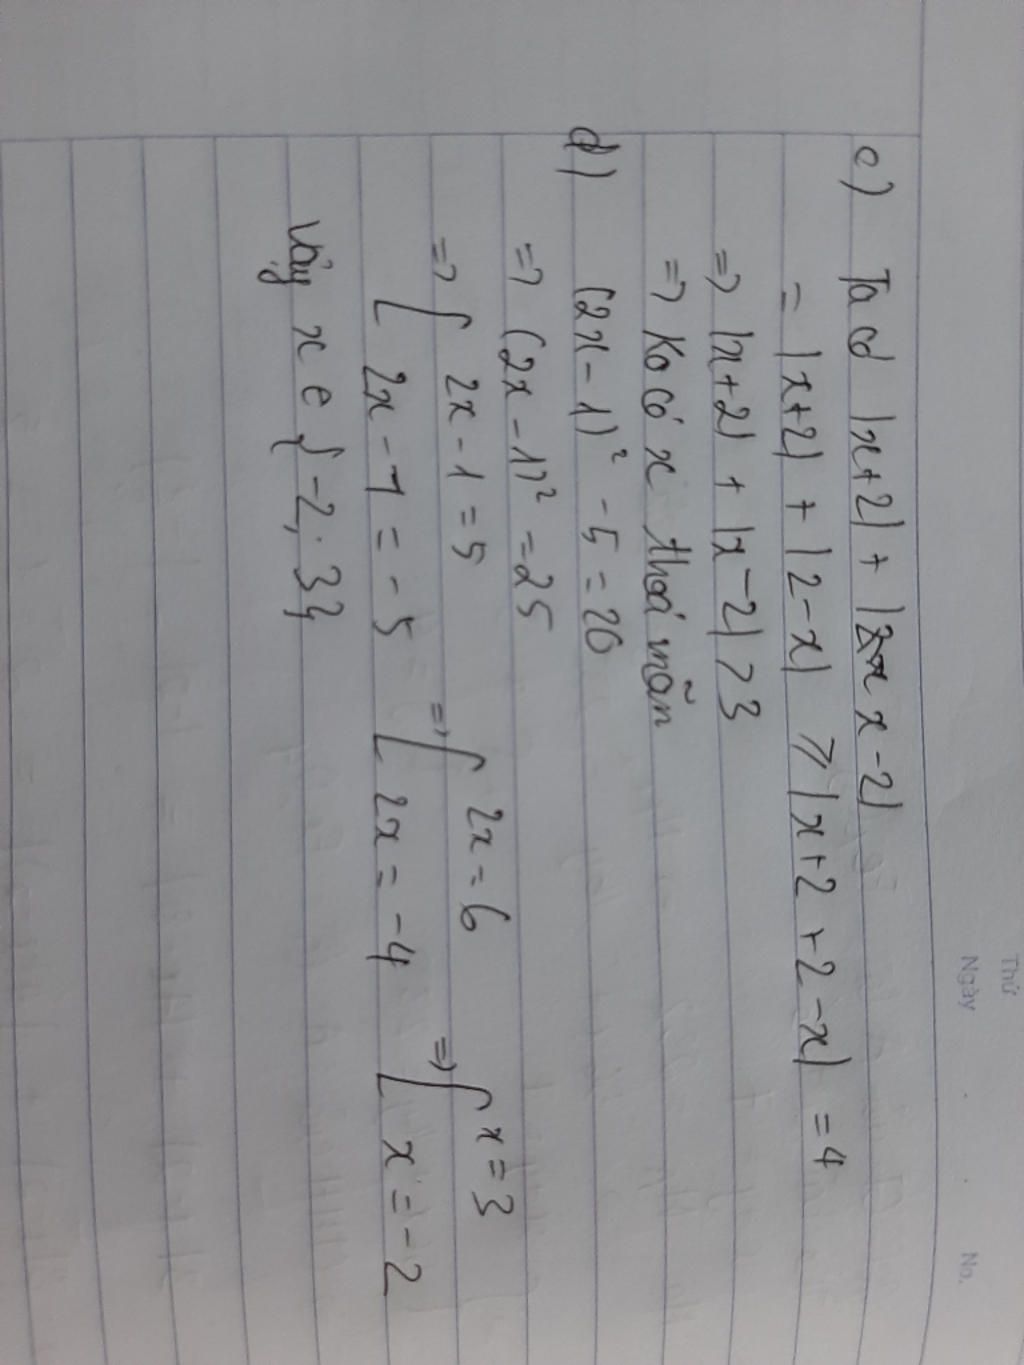 Thứ
Ngày . . No.
c) Ta có |x+2| + |x-2|
= |x+2| + |2-x| ⩾ |x+2+2-x| = 4
=> |x+2| + |x-2| > 3
=> Ko có x thoả mãn
d) (2x-1)² - 5 = 20
=> (2x-1)² = 25
=> [ 2x-1=5 => [ 2x=6 => [ x=3
2x-1=-5 2x=-4 x=-2
Vậy x ∈ {-2; 3}